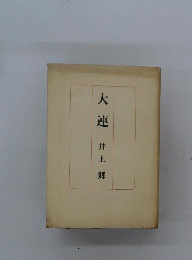 大連
井上郷